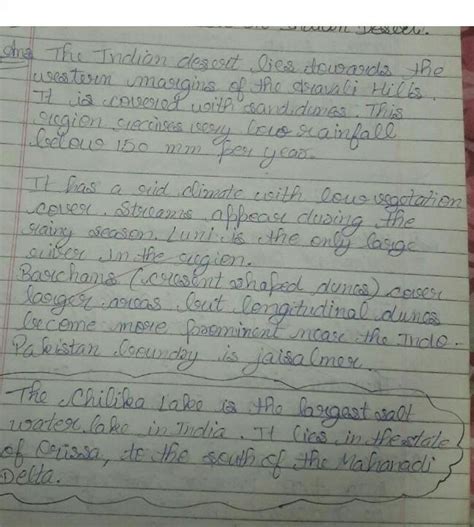 the Indian Desert.
Ans The Indian desert lies towards the
western margins of the Aravali Hills.
It is covered with sand dunes. This
region recives very low rainfall
below 150 mm per year.
It has a arid climate with low vegetation
cover. Streams appear during the
rainy season. Luni is the only large
river in the region.
Barchans (cresent shaped dunes) cover
larger areas but longitudinal dunes
become more prominent near the Indo-
Pakistan boundy is jaisalmer.
The Chilika Lake is the largest salt
water lake in India. It lies in the state
of Orissa, to the south of the Mahanadi
Delta.